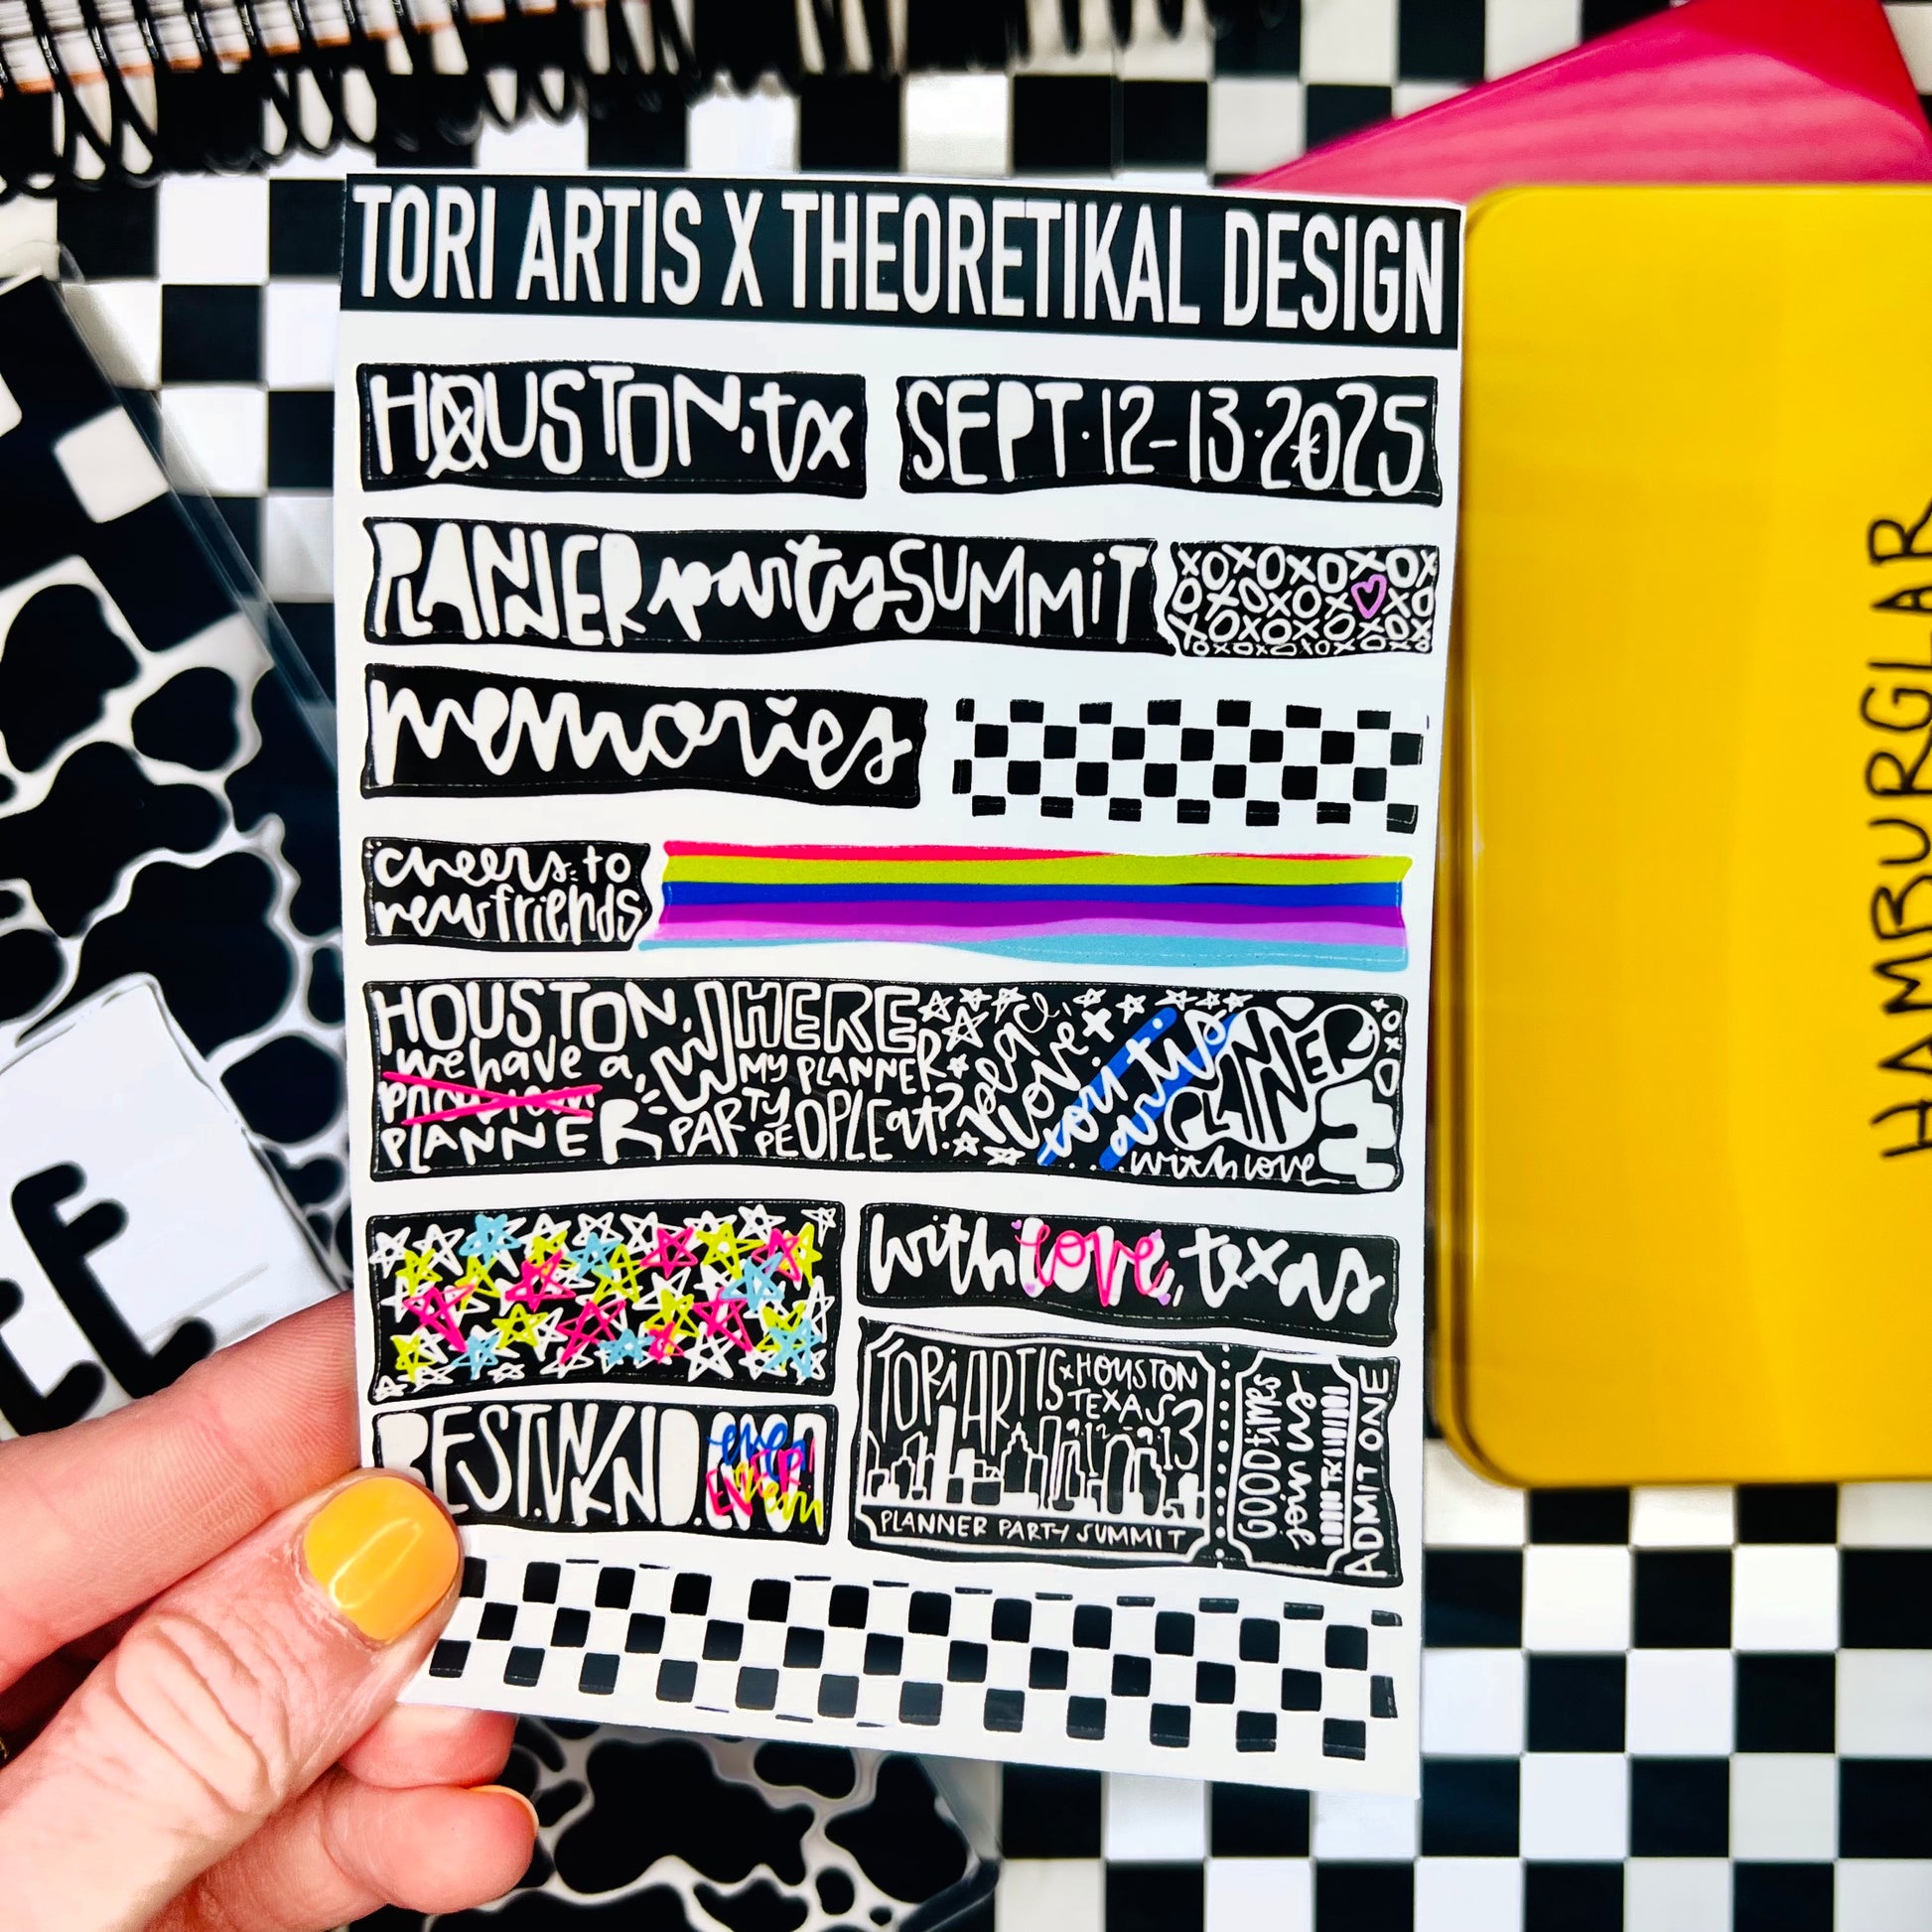 TORI ARTIS X THEORETIKAL DESIGN
HOUSTON, tx
SEPT·12-13·2025
PLANNER party SUMMIT
XOXOXOXOXOX
memories
cheers to
new friends
HOUSTON,
we have a
problem
PLANNER
WHERE
MY PLANNER
PARTY
PEOPLE at?
love
you
PLANNER
with love
with love, texas
BEST.WKND.EVER
TORI ARTIS x HOUSTON
TEXAS
9.12-9.13
PLANNER PARTY SUMMIT
GOOD times
join us
TX
ADMIT ONE
HAMBURGLAR
E